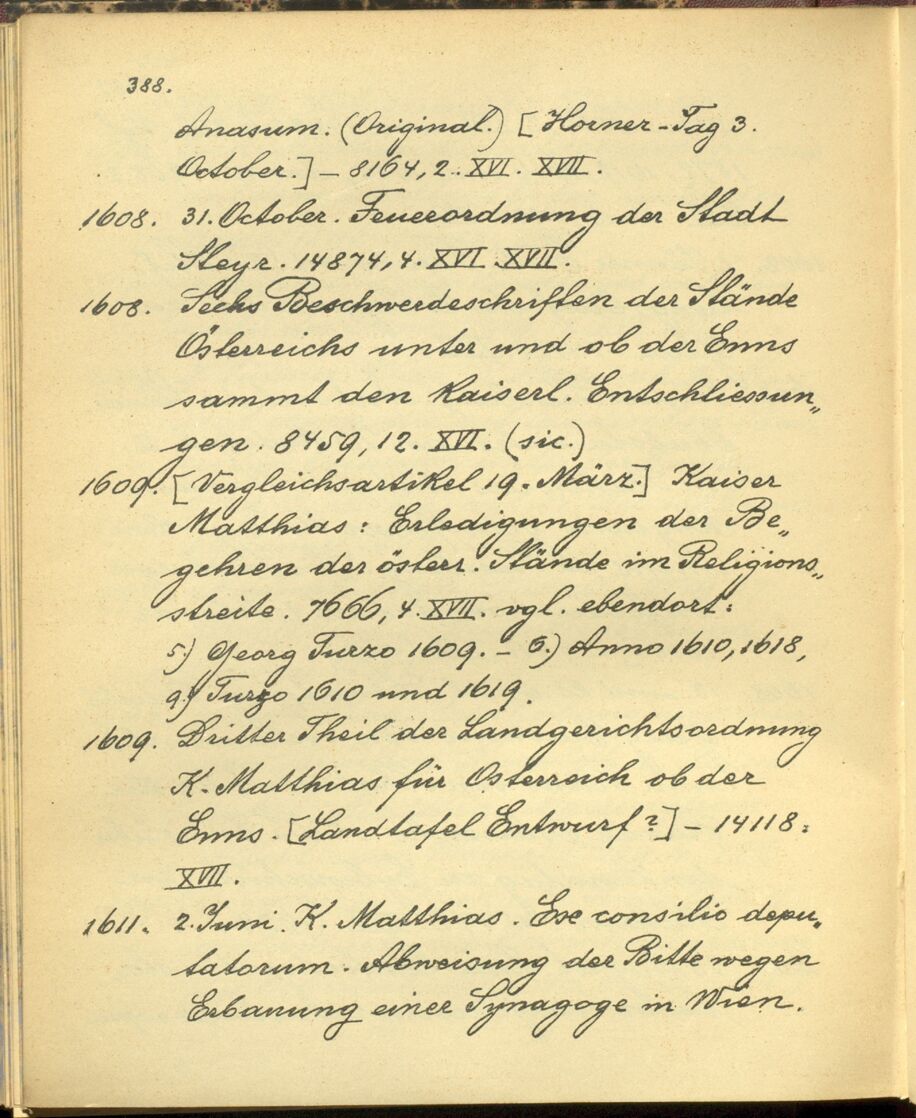 388.
Anasum. (Original.) [Horner-Tag 3.
October.] – 8164, 2. XVI. XVII.
1608. 31. October. Feuerordnung der Stadt
Steyr. 14874, 4. XVI. XVII.
1608. Sechs Beschwerdeschriften der Stände
Österreichs unter und ob der Enns
sammt den kaiserl. Entschliessun„
gen. 8459, 12. XVI. (sic.)
1609. [Vergleichsartikel 19. März.] Kaiser
Matthias: Erledigungen der Be„
gehren der österr. Stände im Religions„
streite. 7666, 4. XVII. vgl. ebendort:
5.) Georg Turzo 1609. – 6.) Anno 1610, 1618,
9.) Turzo 1610 und 1619.
1609. Dritter Theil der Landgerichtsordnung
K. Matthias für Osterreich ob der
Enns. [Landtafel Entwurf?] – 14118:
XVII.
1611. 2. Juni. K. Matthias. Exe consilio depu„
tatorum. Abweisung der Bitte wegen
Erbauung einer Synagoge in Wien.